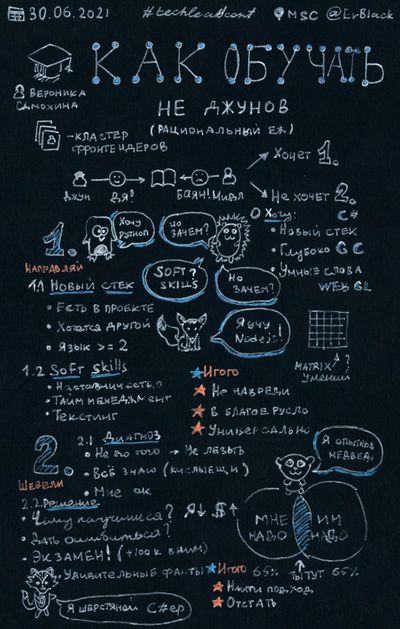 30.06.2021 #techleadconf MSC @ErBlack
КАК ОБУЧАТЬ
ВЕРОНИКА
САМОХИНА
НЕ ДЖУНОВ
(РАЦИОНАЛЬНЫЙ ЁЖ)
-КЛАСТЕР
ФРОНТЕНДЕРОВ
Джун ДЯ! Баян! Мидл
Хочет 1.
Не хочет 2.
1.
НАПРАВЛЯЙ
Хочу
PYTHON
НО
ЗАЧЕМ?
Хочу: C#
Новый стек
Глубоко
Умные слова
WEB GL
SOFT?
SKILLS
НО
ЗАЧЕМ?
1.1 Новый стек
• Есть в проекте
• Хочется другой
• Язык >= 2
Я учу
NodeJS!
MATRIX ?
Умений
1.2 Soft skills
• Наставничество
• Тайм менеджмент
• Текстинг
Итого
Не навреди
В благое русло
Универсально
2.
ШЕВЕЛИ
2.1 Диагноз
• Не его → Не лезть
• Всё знаю (кислые щи)
• Мне ок
Я опытный
медведь!
2.2 Решение
• Чему научишься? Я↓ $↑
• Дать ошибиться?
• ЭКЗАМЕН! (+100к к ним)
• Удивительные факты
МНЕ
НАДО
ИМ
НАДО
65% ТЫ ТУТ 65%
Итого
Найти подход
Отстать
Я шерстяной C#ер